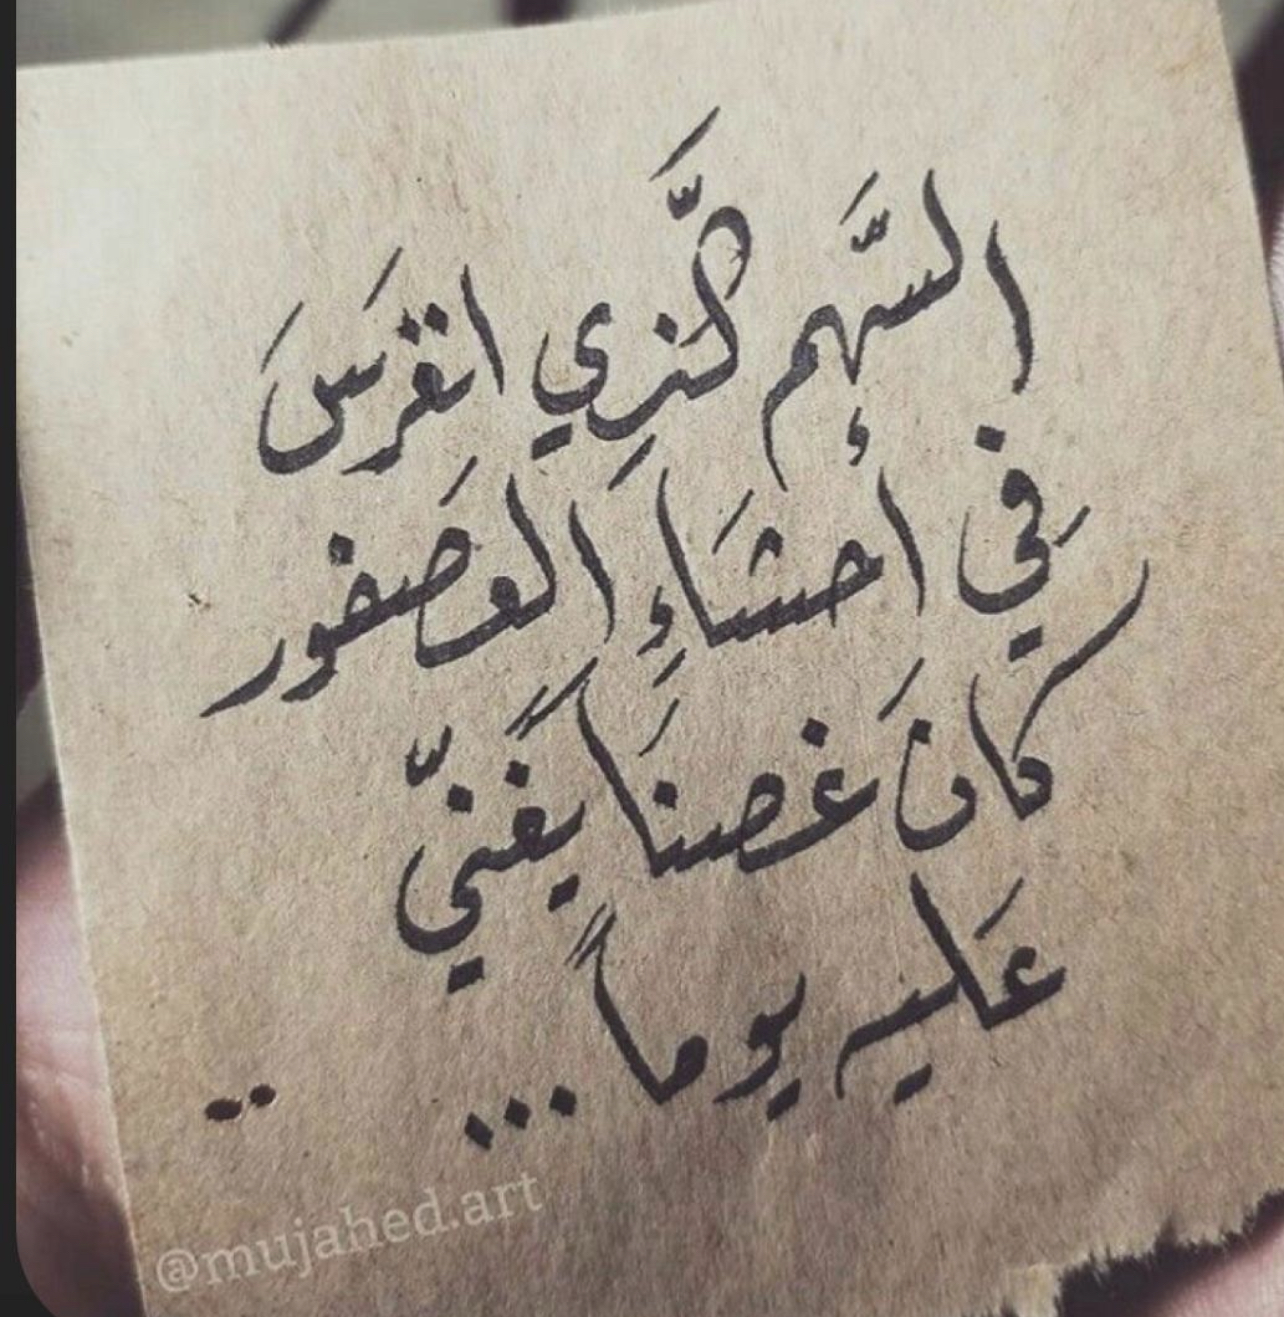 السَّهم الَّذِي انغرَسَ
فِي أحشَاءِ العصَفور
كانَ غصنَاً يغَنيّ
عَليه يوماً...
@mujahed.art